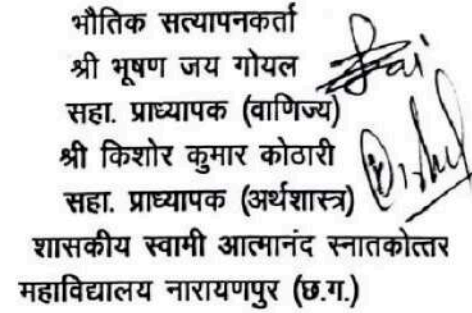 भौतिक सत्यापनकर्ता
श्री भूषण जय गोयल
सहा. प्राध्यापक (वाणिज्य)
श्री किशोर कुमार कोठारी
सहा. प्राध्यापक (अर्थशास्त्र)
शासकीय स्वामी आत्मानंद स्नातकोत्तर
महाविद्यालय नारायणपुर (छ.ग.)